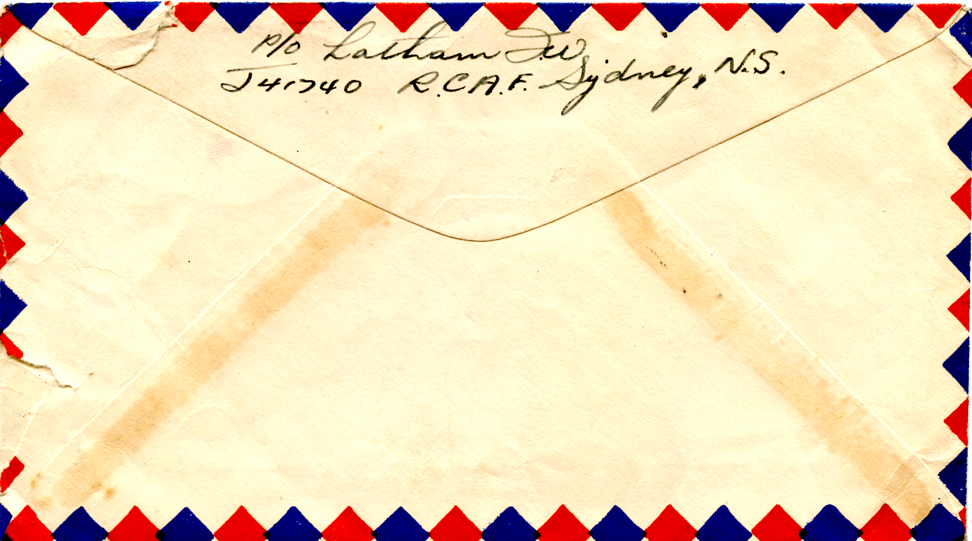 P/O Latham F.W.
J41740 R.C.A.F. Sydney, N.S.